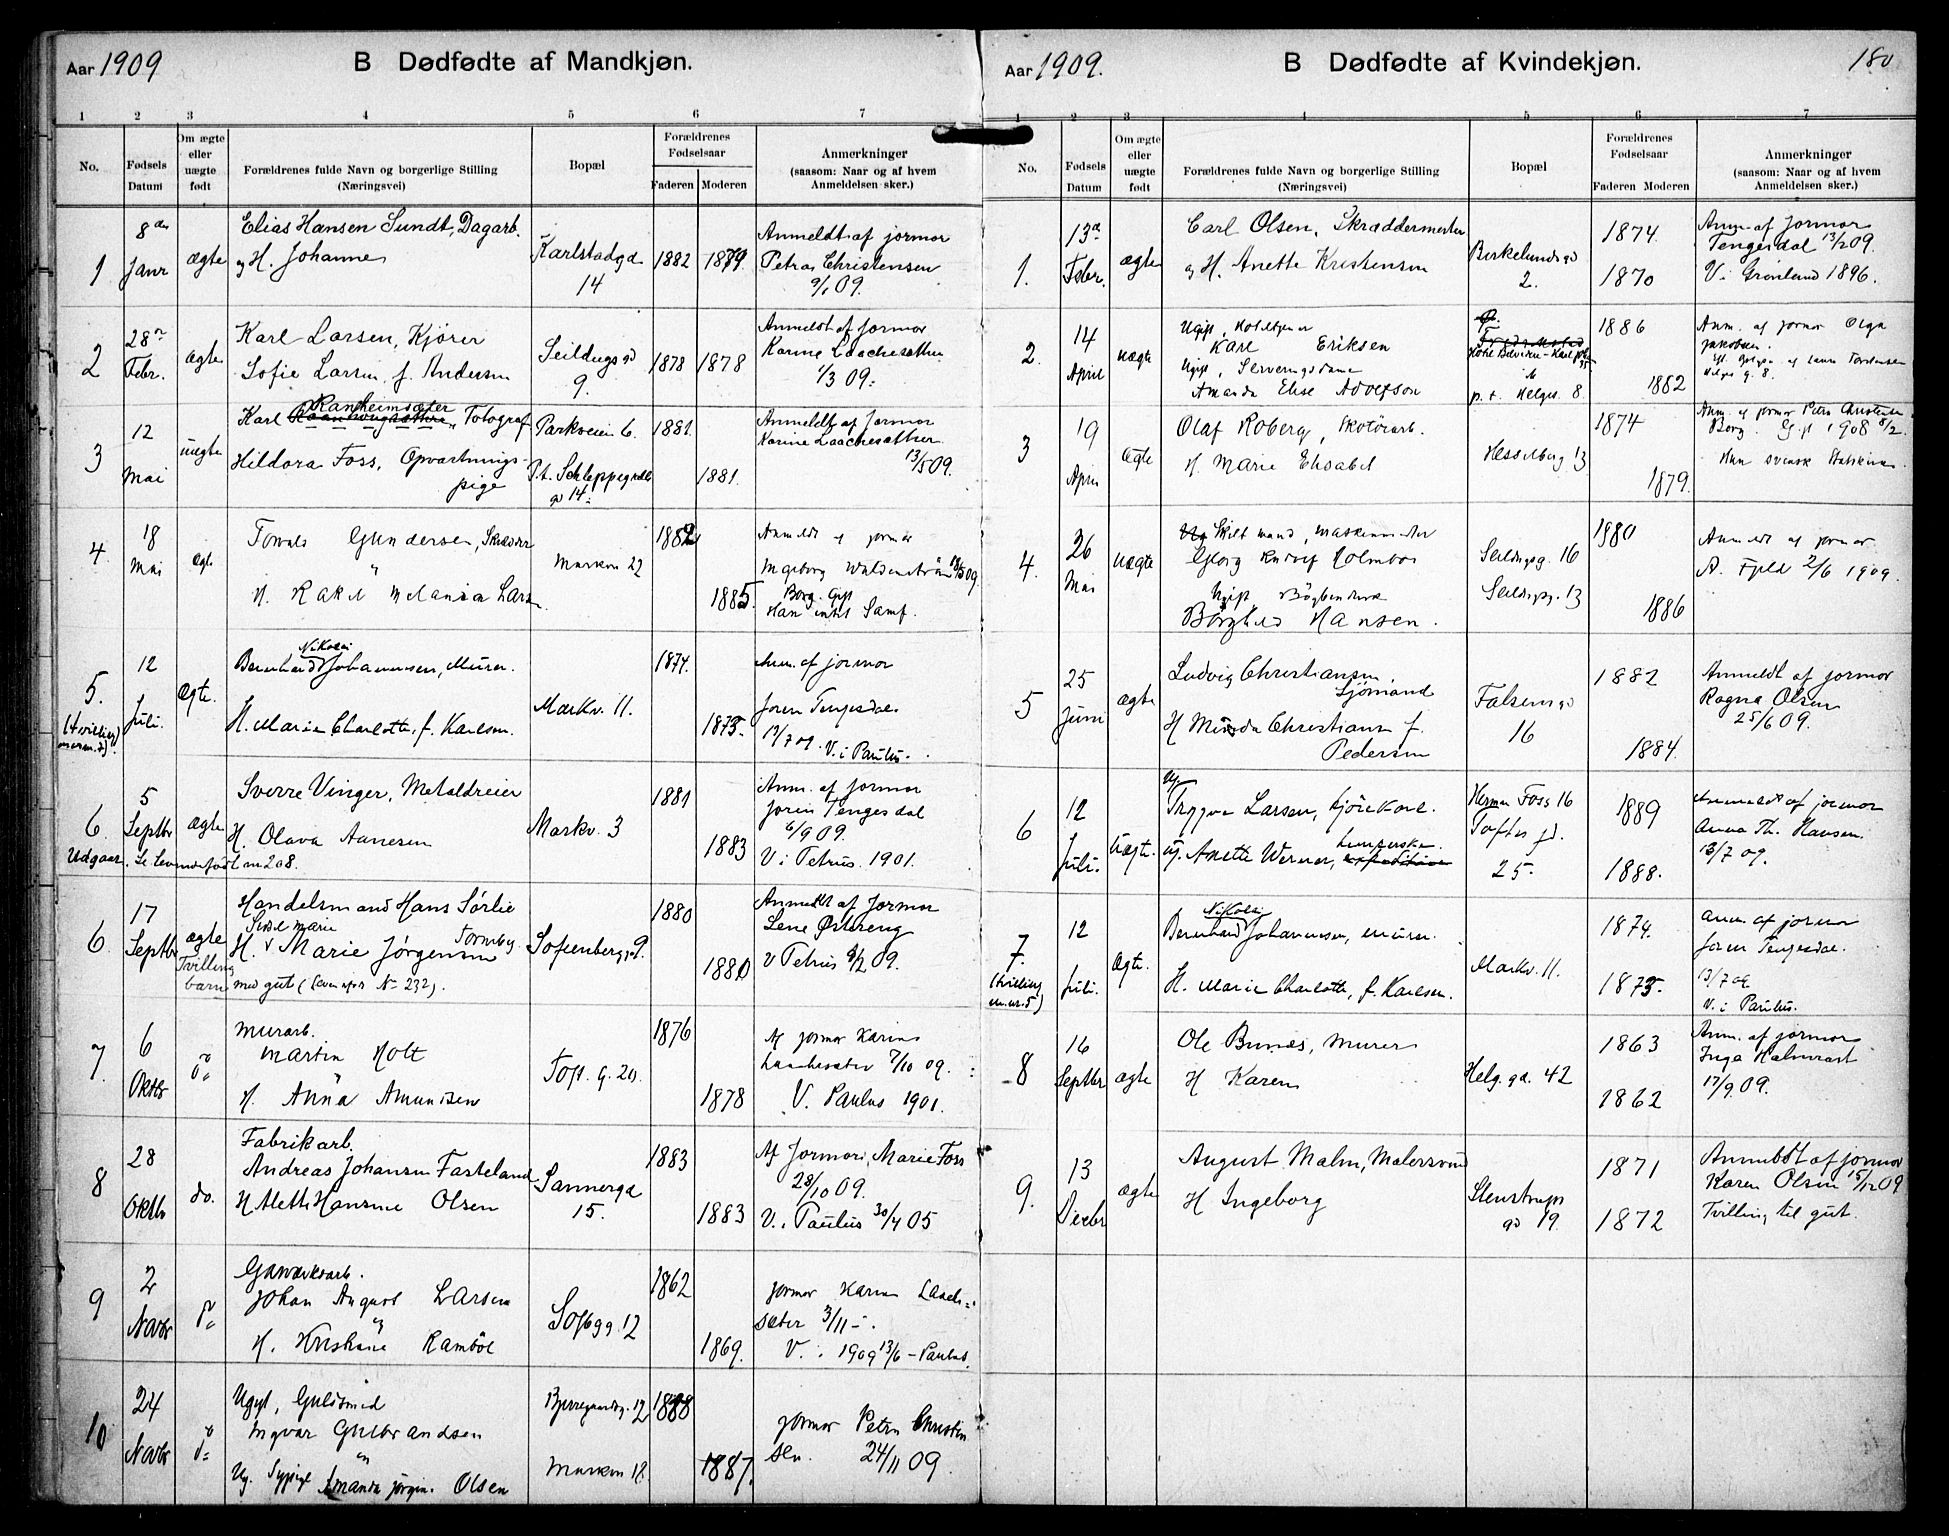 Aar 1909
B Dødfødte af Mandkjøn.
1 2 3 4 5 6 7
No.
Fødsels Datum
Om ægte eller uægte født
Forældrenes fulde Navn og borgerlige Stilling (Næringsvei)
Bopæl
Forældrenes Fødselsaar
Faderen Moderen
Anmerkninger (saasom: Naar og af hvem Anmeldelsen sker.)
1
8de Janr
ægte
Elias Hansen Sundt, Dagarb.
og H. Johanne
Karlstadgd 14
1882 1879
Anmeldt af jormor
Petra Christensen
9/1 09.
2
28de Febr.
ægte
Karl Larsen, Kjører
Sofie Larsen f. Andersen
Seildugsgd 9.
1878 1878
Anmeldt af Jormor
Karine Laachesæther
1/3 09.
3
12 Mai
uægte
Ranheimsæter
Karl Fotograf
Hildora Foss, Opvartnings-
pige
Parkveien 6.
P.t. Schleppegrells gd 14
1881.
1881.
Anmeldt af Jormor
Karine Laachesæther
13/5 09.
4
18 Mai
ægte
Gundersen, Skrædder
H. Rakel Melania Lars
Markvn 22
1882
1885.
Anmeldt af jormor
Ingeborg 18/5 09
Borg. Gift
Han intet Samf.
5.
(tvilling)
12 Juli.
Ægte.
Nikolai
Bernhard Johannesen, Murer.
H. Marie Charlotte, f. Karlsen.
Markv. 11.
1874.
1875.
Anm. af jormor
Joren Tengesdal
13/7 09. V. i Paulus.
6
5 Septbr
ægte
Sverre Vinger, Metaldreier
H. Olava Aanesen
Markv. 3
1881
1883
Anm. af Jormor
Joren Tengesdal
6/9 09.
V i Petrus. 1901.
Udgaar. Se levendefødt nr 208.
6
17 Septbr
ægte
Tvilling
barn
Handelsmand Hans Sørlie
Sivel Marie
H. Marie Jørgensen
Tormby
med gut (levenfør No 232).
Sofienbergg. 9.
1880
1880
Anmeldt af Jormor
Lene Østereng
V Petrus 09.
7
6 Oktbr
do
Murarb.
Martin Holt
H. Anna Amundsen
Toft. g. 20.
1876
1878
Af jormor Karine
Laachesæter 7/10 09.
V. Paulus 1901.
8
28 Oktbr
do.
Fabrikarb.
Andreas Johansen Fasteland
H Aleth Hansine Olsen
Sannergd 15.
1883
1883
Af Jormor, Marie Foss
28/10 09.
V. i Paulus 30/4 05
9
2 Novbr
do
Gasverksarb.
Johan August Larsen
og
H. Kristiane Rambøl
Toftgg. 12
1862
1869.
Jormor Karen Laach-
sæter 3/11
V. i 1909 13/6 - Paulus.
10
24 Novbr
do
Ugift, Guldsmed
Ingvar Gulbrandsen
og
Ug. Sypige Amanda Jørgin. Olsen
Bjerregaardsg. 12
Markvn 18.
1888
1887.
Jormor Petra Christen
sen. 24/11 09.
Aar 1909.
B Dødfødte af Kvindekjøn.
180
1 2 3 4 5 6 7
No.
Fødsels Datum
Om ægte eller uægte født
Forældrenes fulde Navn og borgerlige Stilling (Næringsvei)
Bopæl
Forældrenes Fødselsaar
Faderen Moderen
Anmerkninger (saasom: Naar og af hvem Anmeldelsen sker.)
1.
13de Febr.
ægte
Carl Olsen, Skræddermester
og H. Anette Kristensen
Birkelundsgd 2.
1874.
1870
Anm. af Jormor
Tengesdal 13/2 09.
V. i Grønland 1896.
2.
14 April
uægte
Ugift,
Karl Eriksen
Ugift, Serveringsdame
Amanda Elise Adolfson
p. t. Helges. 8
1886
1882
Anm. af jormor Olga
Jakobsen.
Helges g. 8.
3
19 April
ægte
Olaf Roberg, Skotøiarb.
H Marie Elisabet
Hesselberg 13
1874
1879.
Anm. af jormor Petra Christensen
Borg. Gift 1908 8/2.
Han svensk Statskirke.
4.
26 Mai
uægte
Skilt mand, Maskinmester
Georg Rudolf Holmboe
Ugift Bogbinderske
Borghild Hansen.
Seildugsg. 16
Seildugsg. 13
1880
1886
Anmeldt af jormor
A. Fjeld 2/6 1909.
5
25 Juni
ægte
Ludvig Christiansen,
Sjømand
H Minda Christiansen f.
Pedersen
Falsensgd 16
1882
1884.
Anmeldt af jormor
Ragna Olsen
25/6 09.
6
12 Juli.
Uægte.
Ug.
Trygve Larsen, Kjørekarl.
ug. Anette Werner,
Herman Foss 16
Toftes gd. 25.
1889
1888.
Anmeldt af jormor
Anna Th. Hansen.
13/7 09.
7.
(tvilling m. nr. 5)
12 Juli.
Ægte.
Nikolai
Bernhard Johannesen, murer.
H. Marie Charlotte, f. Karlsen.
Markv. 11.
1874.
1875.
Anm. af jormor
Joren Tengesdal.
13/7 09
V. i Paulus.
8
16 Septbr
ægte
Ole Bunæs, Murer
H Karen
Helg. gd. 42
1863
1862
Anm. af jormor
Inga Halmrast
17/9 09.
9.
13 Decbr
ægte
August Malm, Malersvend
H Ingeborg
Stenstrups gd 19.
1871
1872
Anmeldt af jormor
Karen Olsen 15/12 09
Tvilling til gut.